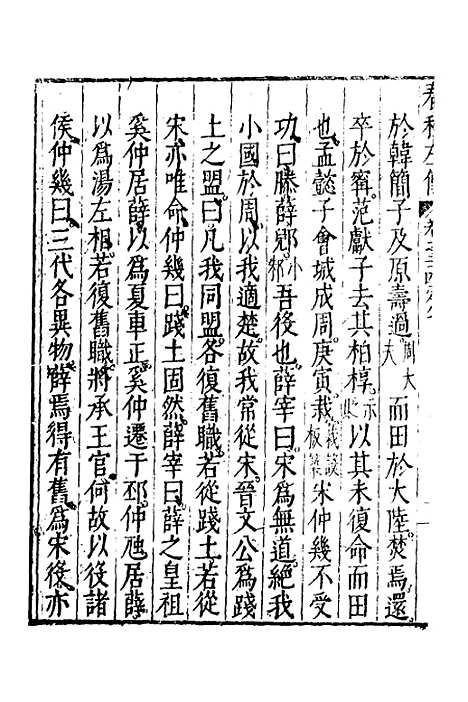 春秋左傳
於韓簡子及原壽過周大夫而田於大陸焚焉還
卒於甯范獻子去其柏椁示貶以其未復命而田
也孟懿子會城成周庚寅栽栽設板築宋仲幾不受
功曰滕薛郳小邾吾役也薛宰曰宋爲無道絶我
小國於周以我適楚故我常從宋晉文公爲踐
土之盟曰凡我同盟各復舊職若從踐土若從
宋亦唯命仲幾曰踐土固然薛宰曰薛之皇祖
奚仲居薛以爲夏車正奚仲遷于邳仲虺居薛
以爲湯左相若復舊職將承王官何故以役諸
侯仲幾曰三代各異物薛焉得有舊爲宋役亦